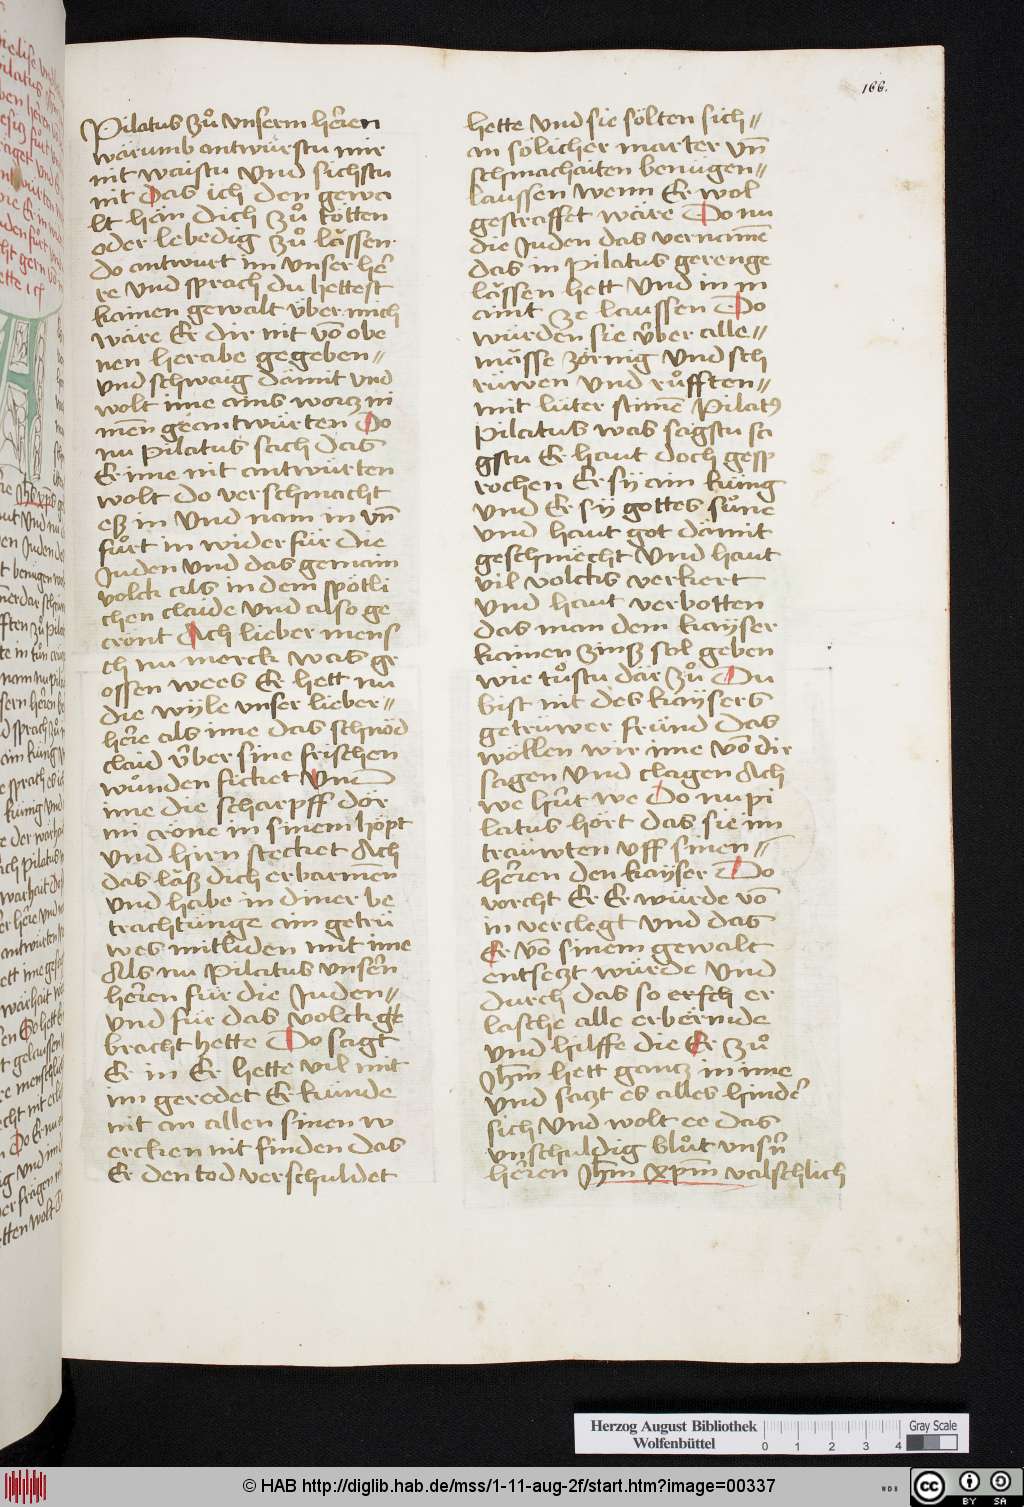 166.
Pilatus zů vnserm hêren
warumb antwürstu mir
nit waistu vnd sichstu
nit Das ich den gewa
lt hän dich zů tötten
oder lebedig zů lässen
do antwurt im vnser hê
re vnd sprach du hettest
kainen gewalt über mich
wäre Er dir nit vō obe
nen herabe gegeben
vnd schwaig dämit vnd
wolt ime ains worcz ni
men geantwürten Do
nu pilatus sach das
Er ime nit antwürten
wolt do verschmacht
esz in vnd nam in vn̄
fůrt in wider für die
Juden vnd das gemain
volck als in dem spötli
chen claide vnd also ge
crönt Ach lieber mens
ch nu merck was gr
ossen wees Er hett nu
die wyle vnser lieber
hêre als ime das schnöd
claid v̂ber sine frischen
wůnden ficket Vnd
ime die scharpff dör
ni crone in sinem höpt
vnd hirn stecket Ach
das läsz dich erbarmen
vnd habe in diner be
trachtünge ain getrü
wes mitliden mit ime
Als nu Pilatus vnsern
hêren für die Juden
vnd für das volck ge
bracht hette Do sagt
Er in Er hette vil mit
im geredet Er künde
nit an allen sinen w
ercken nit finden das
Er den tod verschuldet
hette vnd sie sölten sich
an sölicher marter vn̄
schmachaiten benügen
laussen wenn Er wol
gestraffet wäre Do nu
die Juden das vernamē
das in Pilatus gerenge
lässen hett vnd in in
aint ze laussen Do
würden sie v̂ber alle
mässe zörnig vnd sch
rüwen vnd růfften
mit lüter stimē Pilatꝰ
pilatus was sagstu sa
gstu Er haut doch gesp
rochen Er sÿ ain küng
vnd Er sÿ gottes sůne
vnd haut got dämit
geschmëcht vnd haut
vil volcks verkert
vnd haut verbotten
das man dem kaÿser
kainen zinsz sol geben
wie tůstu dar zů Du
bist nit des kaÿsers
getrüwer fründ das
wöllen wir ime vō dir
sagen vnd clagen Ach
we hüt we Do nu pi
latus hört das sie im
träuwten vff sinen
hêren den kaÿser Do
vorcht Er Er würde vō
in verclegt vnd das
Er vō sinem gewalt
entseczt würde vnd
durch das so ersch er
lasche alle erbërmde
vnd hilffe die Er zů
Jhm̄ hett gancz in ime
vnd saczt es alles hinder
sich vnd wolt ee das
vnschuldig blůt vnsn̄
hêren Jhm̄ xpm̄ valschlich
Herzog August Bibliothek
Wolfenbüttel
0 1 2 3 4
Gray Scale
© HAB http://diglib.hab.de/mss/1-11-aug-2f/start.htm?image=00337
cc BY SA